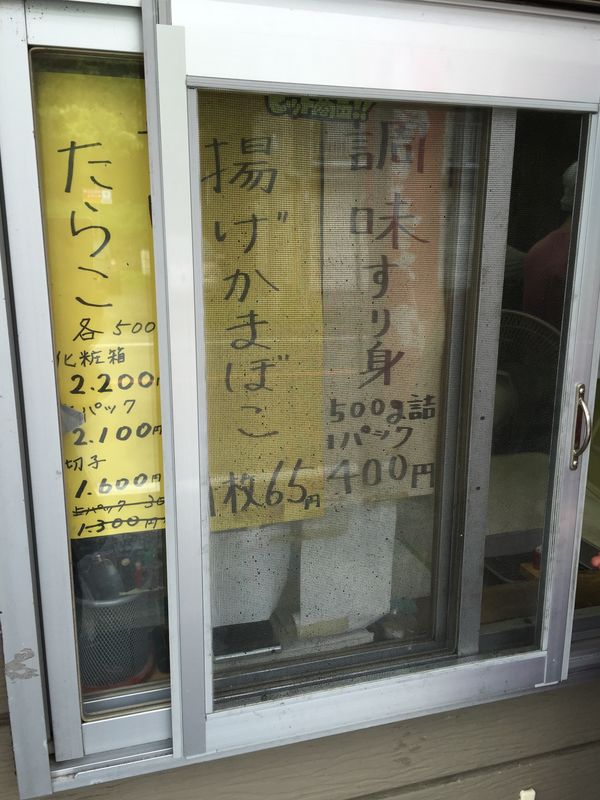 たらこ
各500
化粧箱
2.200円
パック
2.100円
切子
1.600円
1.300円
揚げかまぼこ
1枚65円
調味すり身
500g詰
1パック
400円